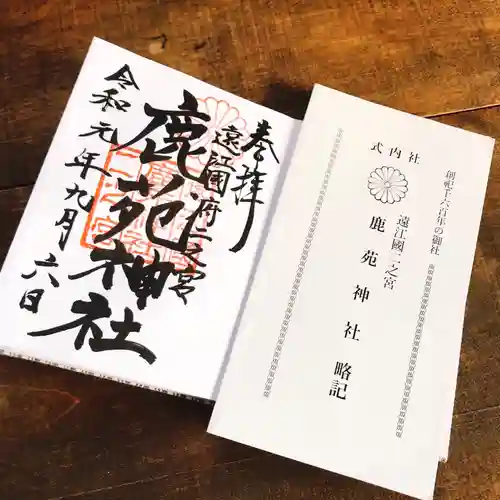 奉拝
遠江國府二之宮
鹿苑神社
令和元年九月六日
創祀千六百年の御社
式内社
遠江國二之宮
鹿苑神社 略記